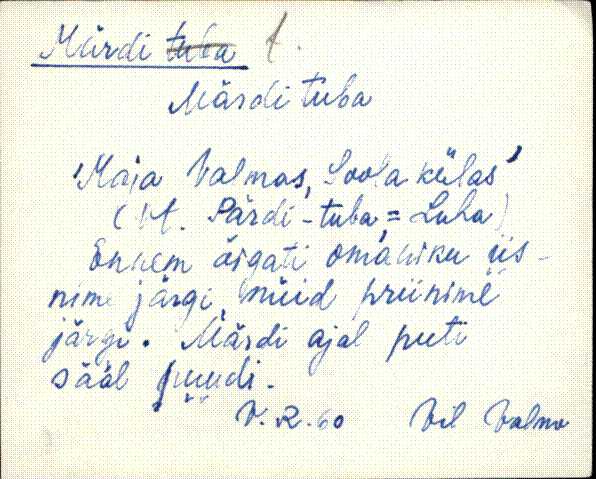 Märdi tuba t.
Märdi tuba
'Maja Valmas, Soola külas'
(Vt. Pärdi-tuba = Luha)
Ennem õigati omaniku iis-
nime järgi, nüid priinime
järgi. Märdi ajal peeti
sääl puudi.
V. R. 60 Vil Valmo